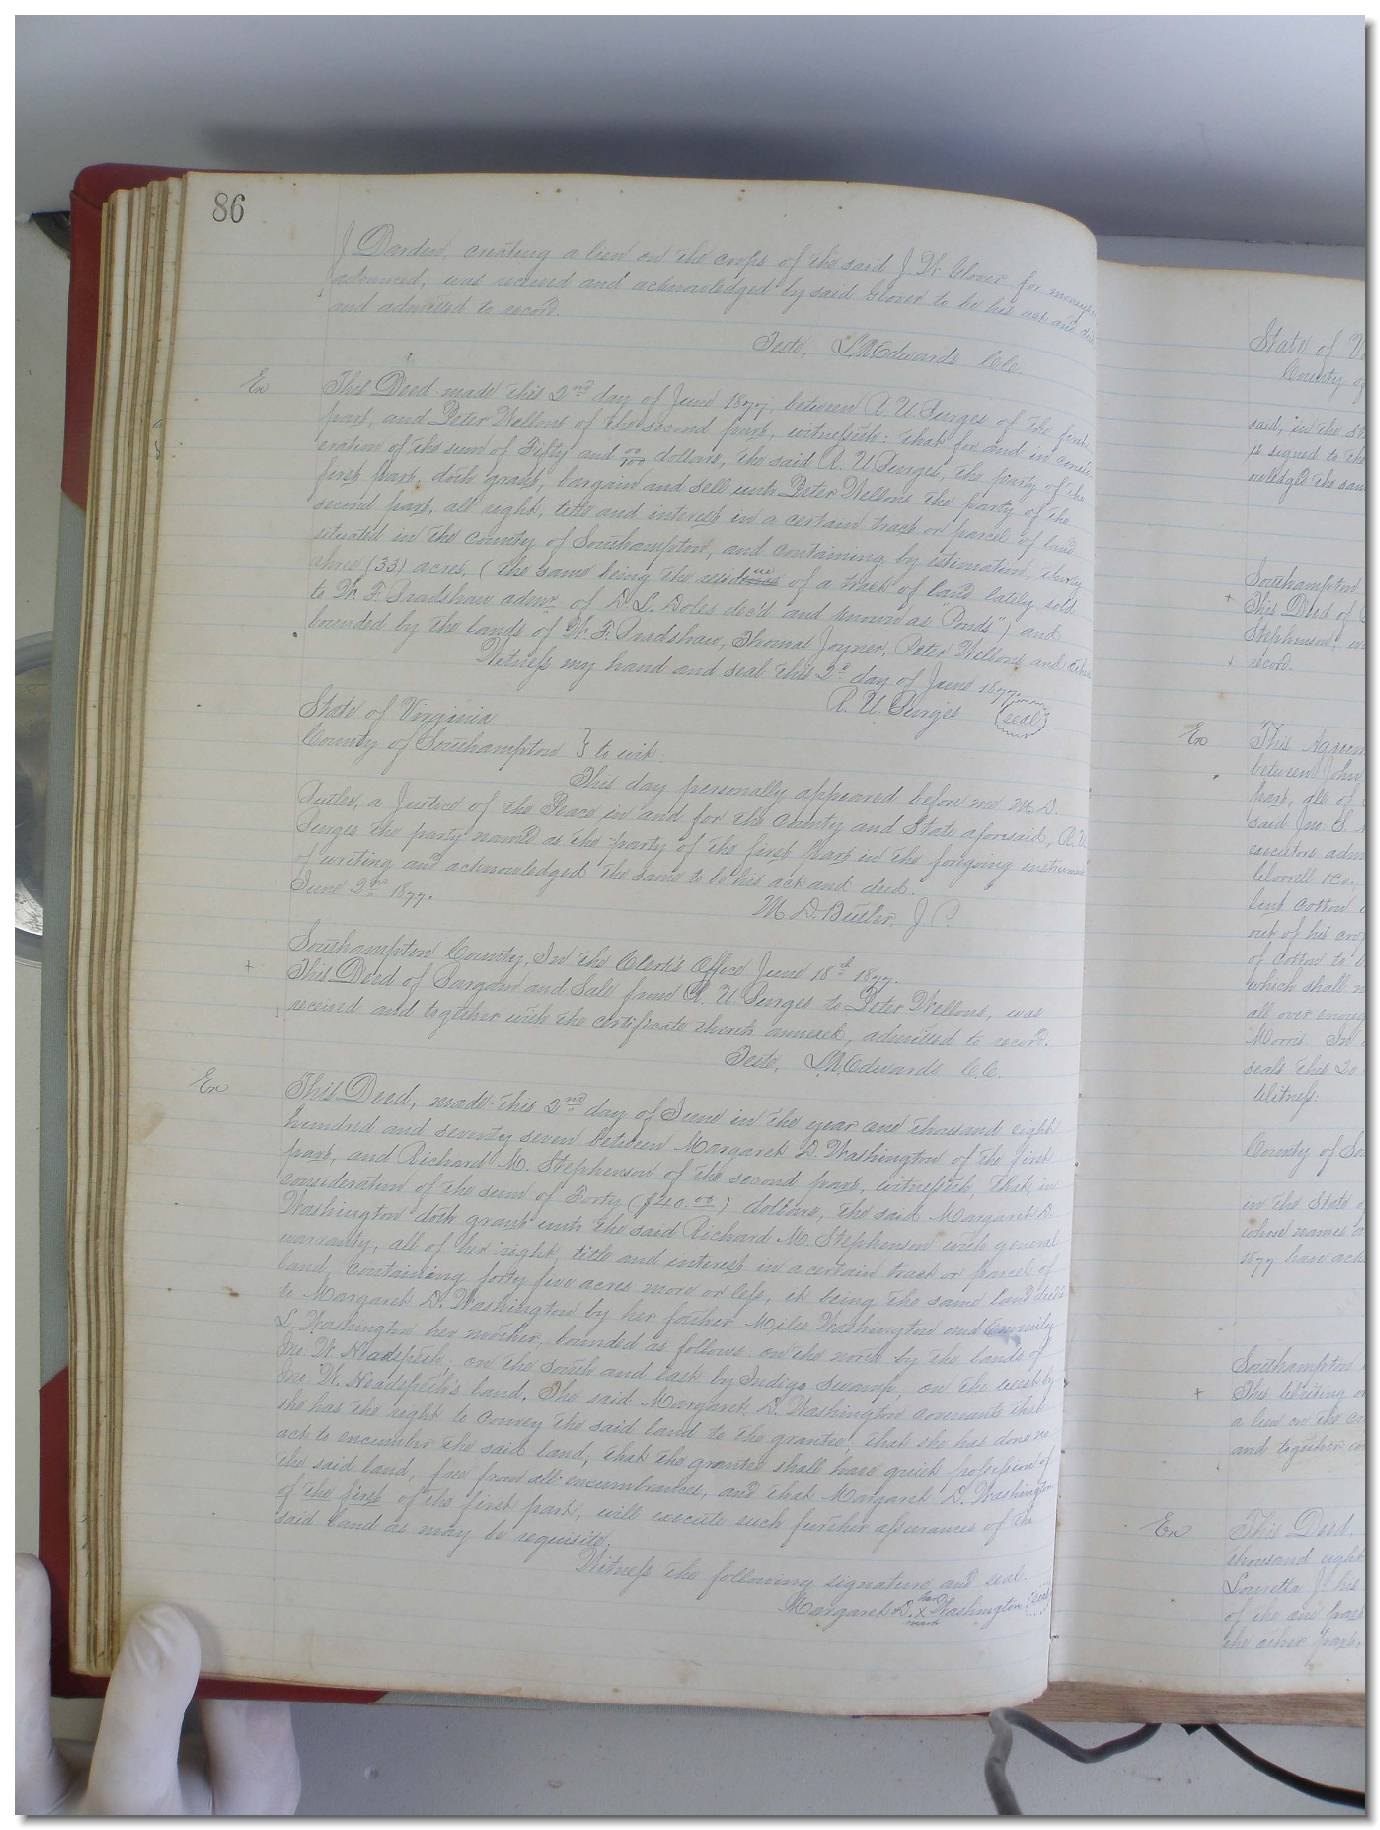 86
J Darden, creating a lien on the crops of the said J. W. Glover for moneys
advanced, was received and acknowledged by said Glover to be his act and deed
and admitted to record.
Teste, L. R. Edwards C.C.
Ex
This Deed made this 2nd day of June 1877, between R. U. Burges of the first
part, and Peter Wellons of the second part, witnesseth: that for and in consid-
eration of the sum of Fifty and 00/100 dollars, the said R. U Burges, the party of the
first part, doth grant, bargain and sell unto Peter Wellons the party of the
second part, all right, title and interest in a certain tract or parcel of land
situated in the County of Southampton, and containing by estimation, thirty
three (33) acres, (the same being the residue of a tract of land lately sold
to W. F. Bradshaw admr. of D. L. Doles dec'd and known as "Ponds") and
bounded by the lands of W. F. Bradshaw, Thomas Joyner, Peter Wellons and others
Witness my hand and seal this 2d day of June 1877.
R. U. Burges (seal)
State of Virginia
County of Southampton } to wit.
This day personally appeared before me M. D.
Butler, a Justice of the Peace in and for the County and State aforesaid, R. U.
Burges the party named as the party of the first part in the foregoing instrument
of writing and acknowledged the same to be his act and deed.
June 2nd 1877.
M. D. Butler, J. P.
Southampton County, In the Clerk's Office June 18th 1877.
+ This Deed of Bargain and Sale from R. U Burges to Peter Wellons, was
received and together with the certificate thereto annexed, admitted to record.
Teste, L. R. Edwards C.C.
Ex
This Deed, made this 2nd day of June in the year one thousand eight
hundred and seventy seven between Margaret D. Washington of the first
part, and Richard M. Stephenson of the second part, witnesseth, that, in
consideration of the sum of Forty ($40.00) dollars, the said Margaret D.
Washington doth grant unto the said Richard M. Stephenson with general
warranty, all of her right, title and interest in a certain tract or parcel of
land, containing forty five acres more or less, it being the same land
to Margaret D. Washington by her father Miles Washington and
L. Washington her mother, bounded as follows: on the north by the lands of
Jno. W. Neadspeth, on the south and east by Indigo Swamp, on the west by
Jno. W. Neadspeth's land. The said Margaret D. Washington covenants that
she has the right to convey the said land to the grantee; that she has done no
act to encumber the said land; that the grantee shall have quiet possession of
the said land, free from all encumbrances, and that Margaret D. Washington
of the first of the first part, will execute such further assurances of the
said land as may be requisite.
Witness the following signature and seal.
her
Margaret D. X Washington (seal)
mark
State of V
County of
said, in the St
is signed to the
Southampton
+ This Deed of
Stephenson, w
record.
Ex
This Agreem
between John
part, all of
said Jno. S.
executors adm
lint cotton
out of his cro
of cotton to
which shall n
all over enoug
Morris. In
seals this 20
Witness:
County of So
in the State o
whose names a
1877 have ack
Southampton
+ This Writing o
a lien on the cr
and together w
Ex
This Deed,
thousand eight
Louretta J. his
of the one part
the other part,